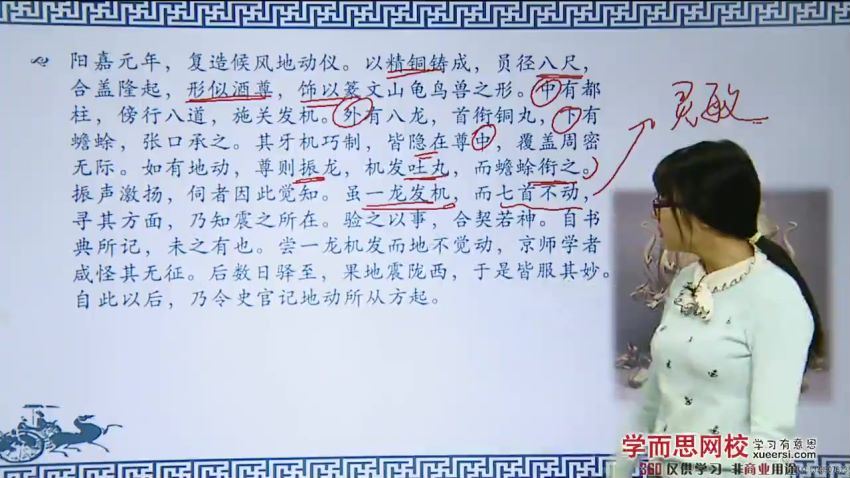 阳嘉元年，复造候风地动仪。以精铜铸成，员径八尺，
合盖隆起，形似酒尊，饰以篆文山龟鸟兽之形。中有都
柱，傍行八道，施关发机。外有八龙，首衔铜丸，下有
蟾蜍，张口承之。其牙机巧制，皆隐在尊中，覆盖周密
无际。如有地动，尊则振龙，机发吐丸，而蟾蜍衔之。
振声激扬，伺者因此觉知。虽一龙发机，而七首不动，
寻其方面，乃知震之所在。验之以事，合契若神。自书
典所记，未之有也。尝一龙机发而地不觉动，京师学者
咸怪其无征。后数日驿至，果地震陇西，于是皆服其妙。
自此以后，乃令史官记地动所从方起。
灵敏
学而思网校
学习有意思
xueersi.com
360 仅供学习 非商业用途